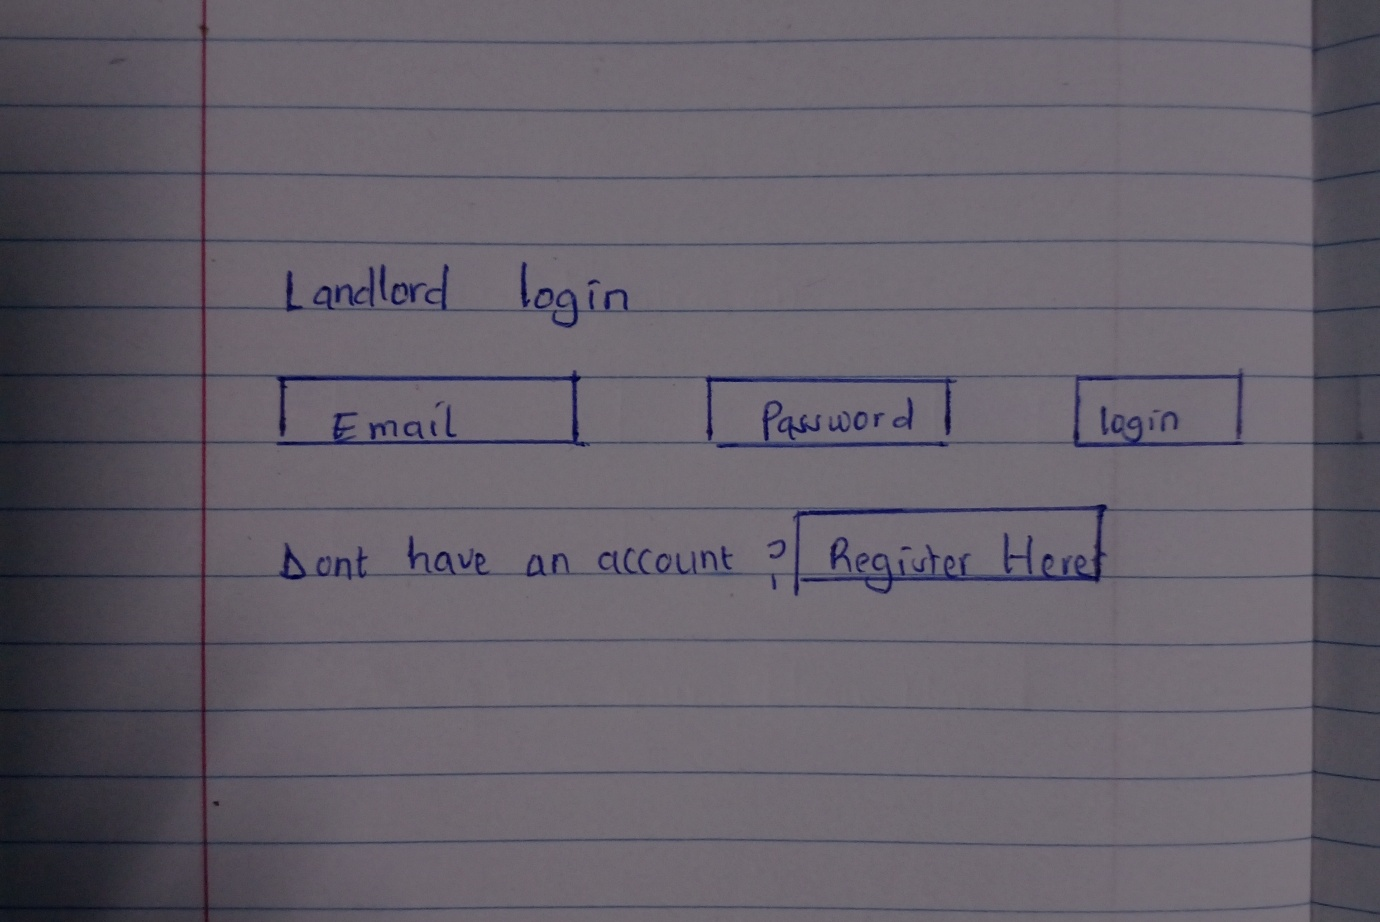 Landlord login
Email Password login
Dont have an account ? Register Here